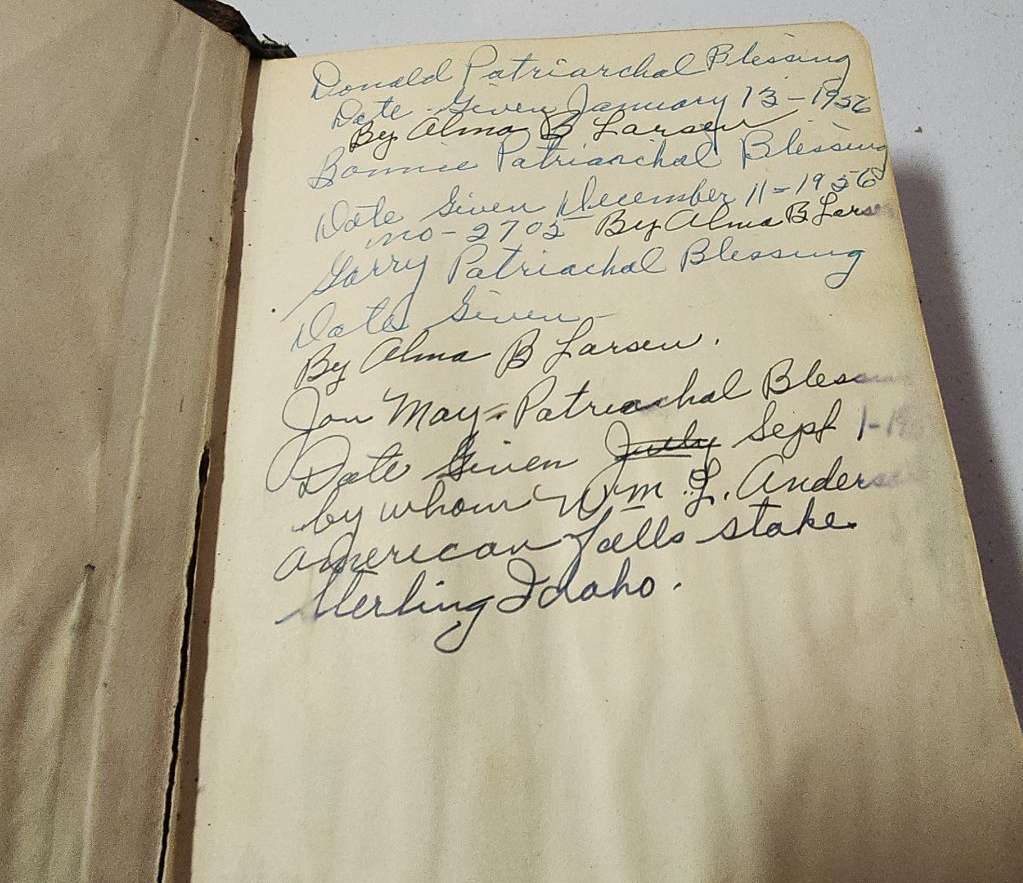 Donald Patriarchal Blessing
Date Given January 13 - 1956
By Alma B Larsen
Bonnie Patriarchal Blessing
Date Given December 11 - 1956
no - 2702 By Alma B Larsen
Garry Patriachal Blessing
Date Given -
By Alma B Larsen.
Jon May - Patriachal Blessing
Date Given July Sept 1-19
by whom Wm. L. Anderson
american falls stake
Sterling Idaho.